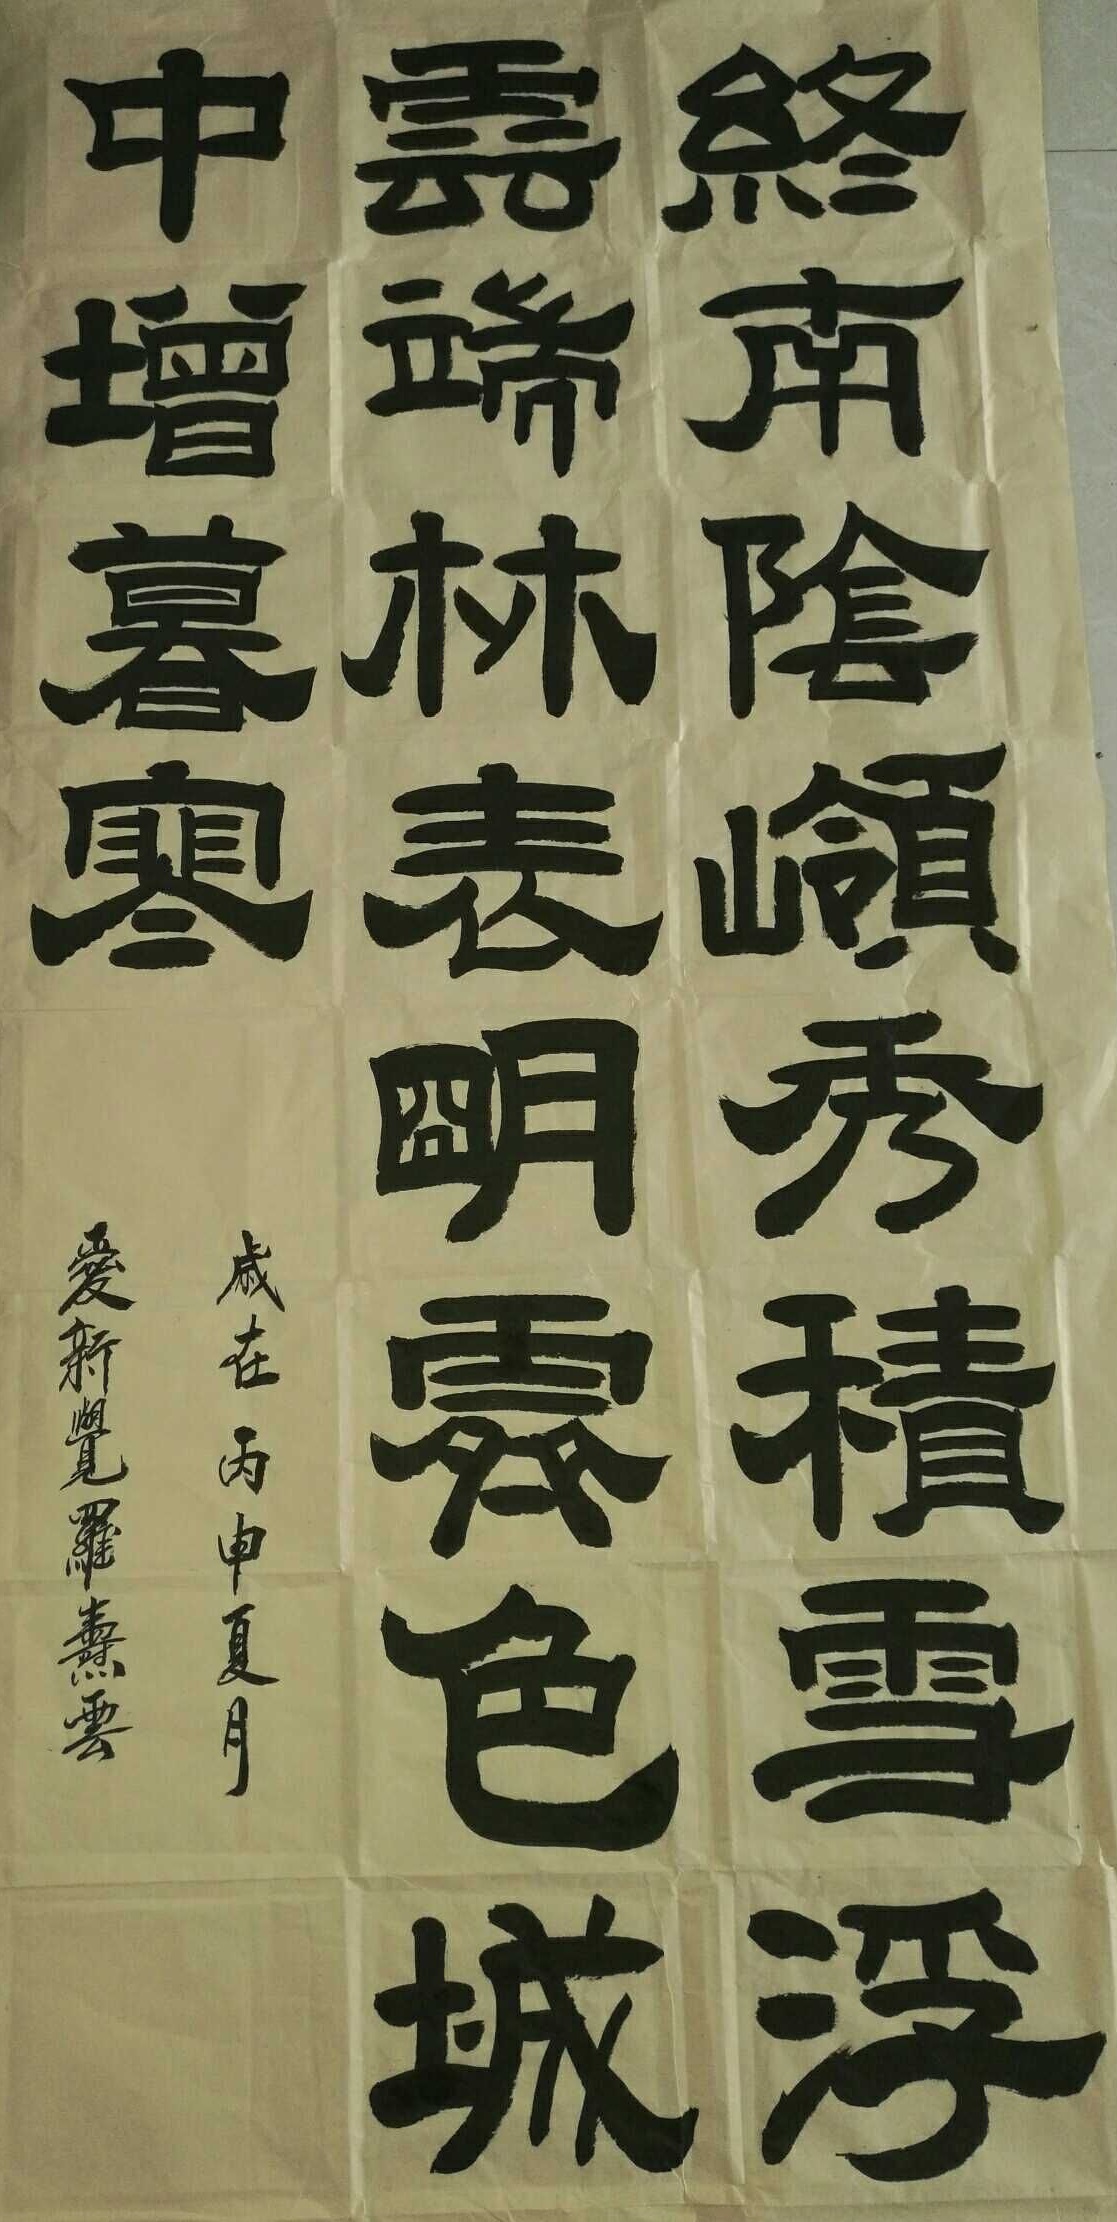 終南陰嶺秀積雪浮
雲端林表明霽色城
中增暮寒
歲在丙申夏月
愛新覺羅燾雲